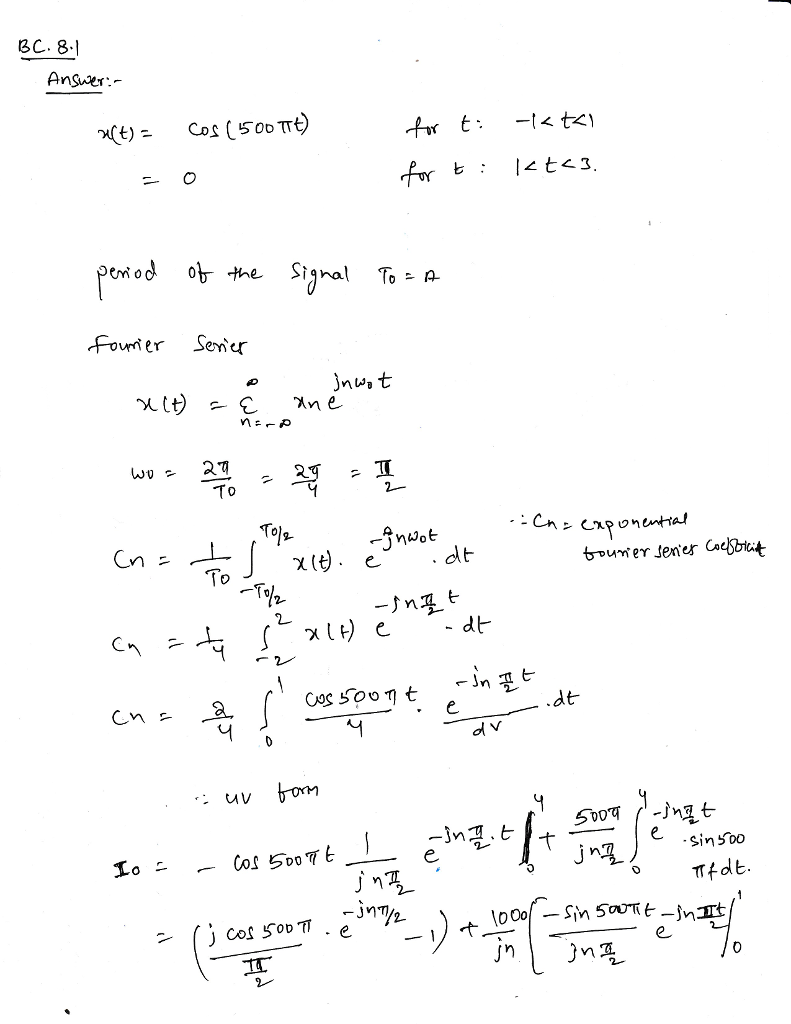 BC. 8.1
Answer:-
x(t) = cos (500 πt) for t: -1<t<1
= 0 for t : 1<t<3.
period of the signal To = 4
fourier series
x(t) = Σ n=-∞ ∞ xn e^jnwot
wo = 2π/To = 2π/4 = π/2
Cn = 1/To ∫ -To/2 To/2 x(t). e^-jnwot . dt ∵ Cn = exponential
fourier series coefficient
Cn = 1/4 ∫ -2 2 x(t) e^-jn π/2 t - dt
Cn = 2/4 ∫ 0 1 cos 500π t/u . e^-jn π/2 t/dv .dt
∵ uv form
Io = - cos 500π t 1/jn π/2 e^-jn π/2 . t ∫ 0 4 + 500π/jn π/2 ∫ 0 4 e^-jn π/2 t .sin 500
πt dt.
= (j cos 500 π/πn/2 . e^-jn π/2 -1) + 1000/jn [ -sin 500πt/jn π/2 e^-jn πt/2 ] 0 1